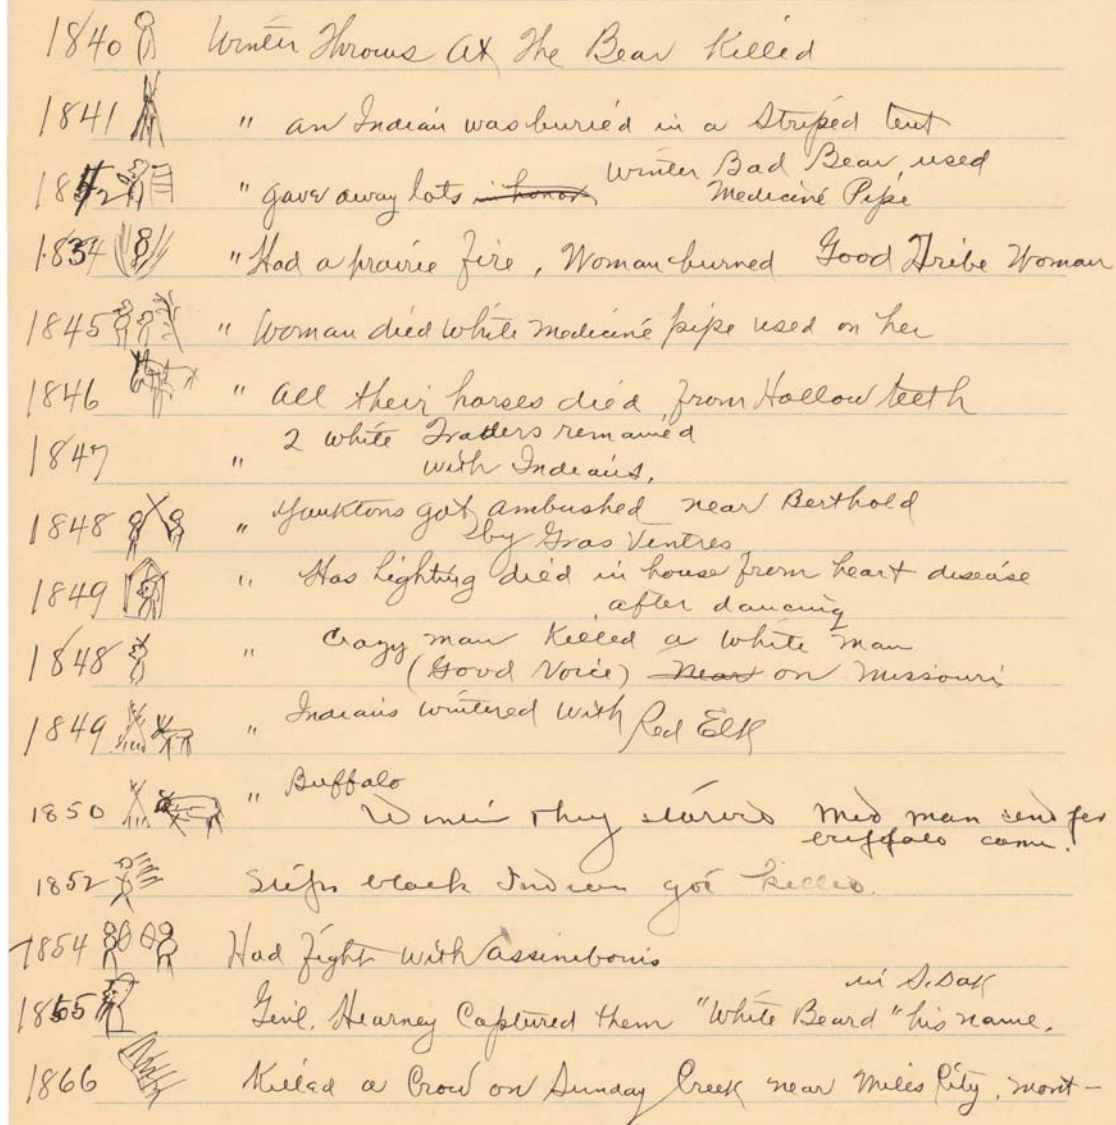 1840 Winter Throws At The Bear Killed
1841 " an Indian was buried in a Striped tent
Winter Bad Bear, used
1842 " gave away lots in honor Medicine Pipe
1834 " Had a prairie fire, Woman burned Good Tribe Woman
1845 " Woman died White Medicine pipe used on her
1846 " all their horses died from Hollow teeth
2 White Traders remained
1847 " with Indians.
1848 " Yanktons got ambushed near Berthold
by Gras Ventres
" Has Lighting died in house from heart disease
1849 after dancing
" Crazy man Killed a White Man
1848 (Good Voice) Near on Missouri
1849 " Indians wintered with Red Elk
" Buffalo
1850 Winter they starved Med man send for
buffalo came.
1852 black Indian got killed.
1854 Had fight with Assinibonis
in S. Dak
1855 Genl. Hearney Captured them "White Beard" his name.
1866 Killed a Crow on Sunday Creek near Miles City, Mont-